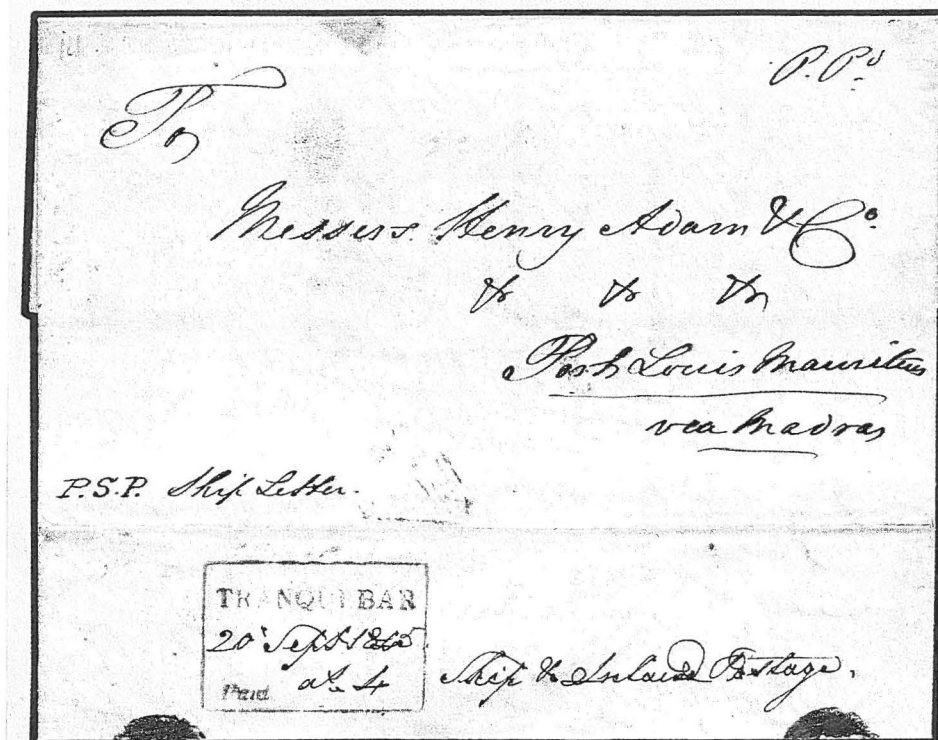 P. Pd.
To
Messers. Henry Adam & Co.
&c &c &c
Port Louis Mauritius
via Madras
P.S.P. Ship Letter.
TRANQUEBAR
20 Sept 1845
Paid as. 4
Ship & Inland Postage.